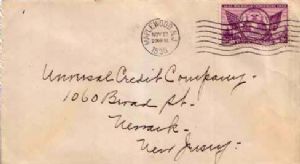 MAPLEWOOD, N.J.
NOV 12
1935
Universal Credit Company,
1060 Broad St.
Newark
New Jersey.